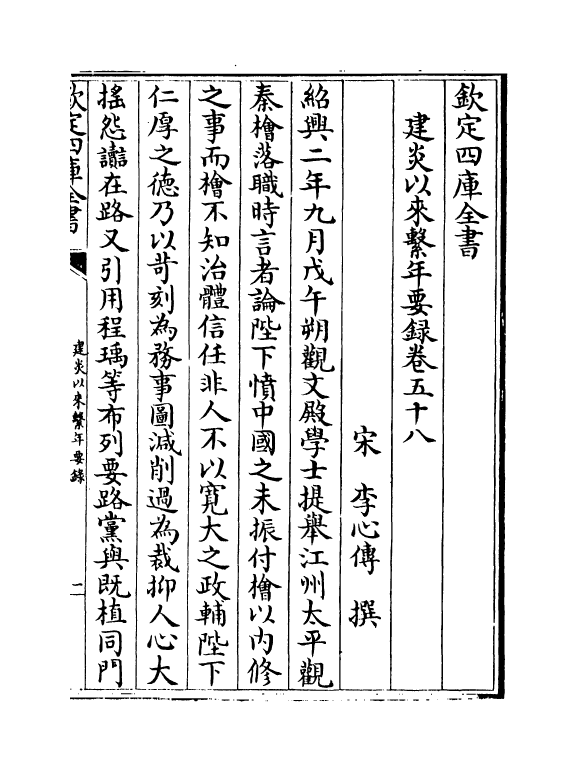 欽定四庫全書
建炎以來繫年要録卷五十八
宋 李心傳 撰
紹興二年九月戊午朔觀文殿學士提舉江州太平觀
秦檜落職時言者論陛下憤中國之未振付檜以内修
之事而檜不知治體信任非人不以寛大之政輔陛下
仁厚之德乃以苛刻為務事圖減削過為裁抑人心大
搖怨讟在路又引用程瑀等布列要路黨與既植同門
欽定四庫全書
建炎以來繫年要錄
二